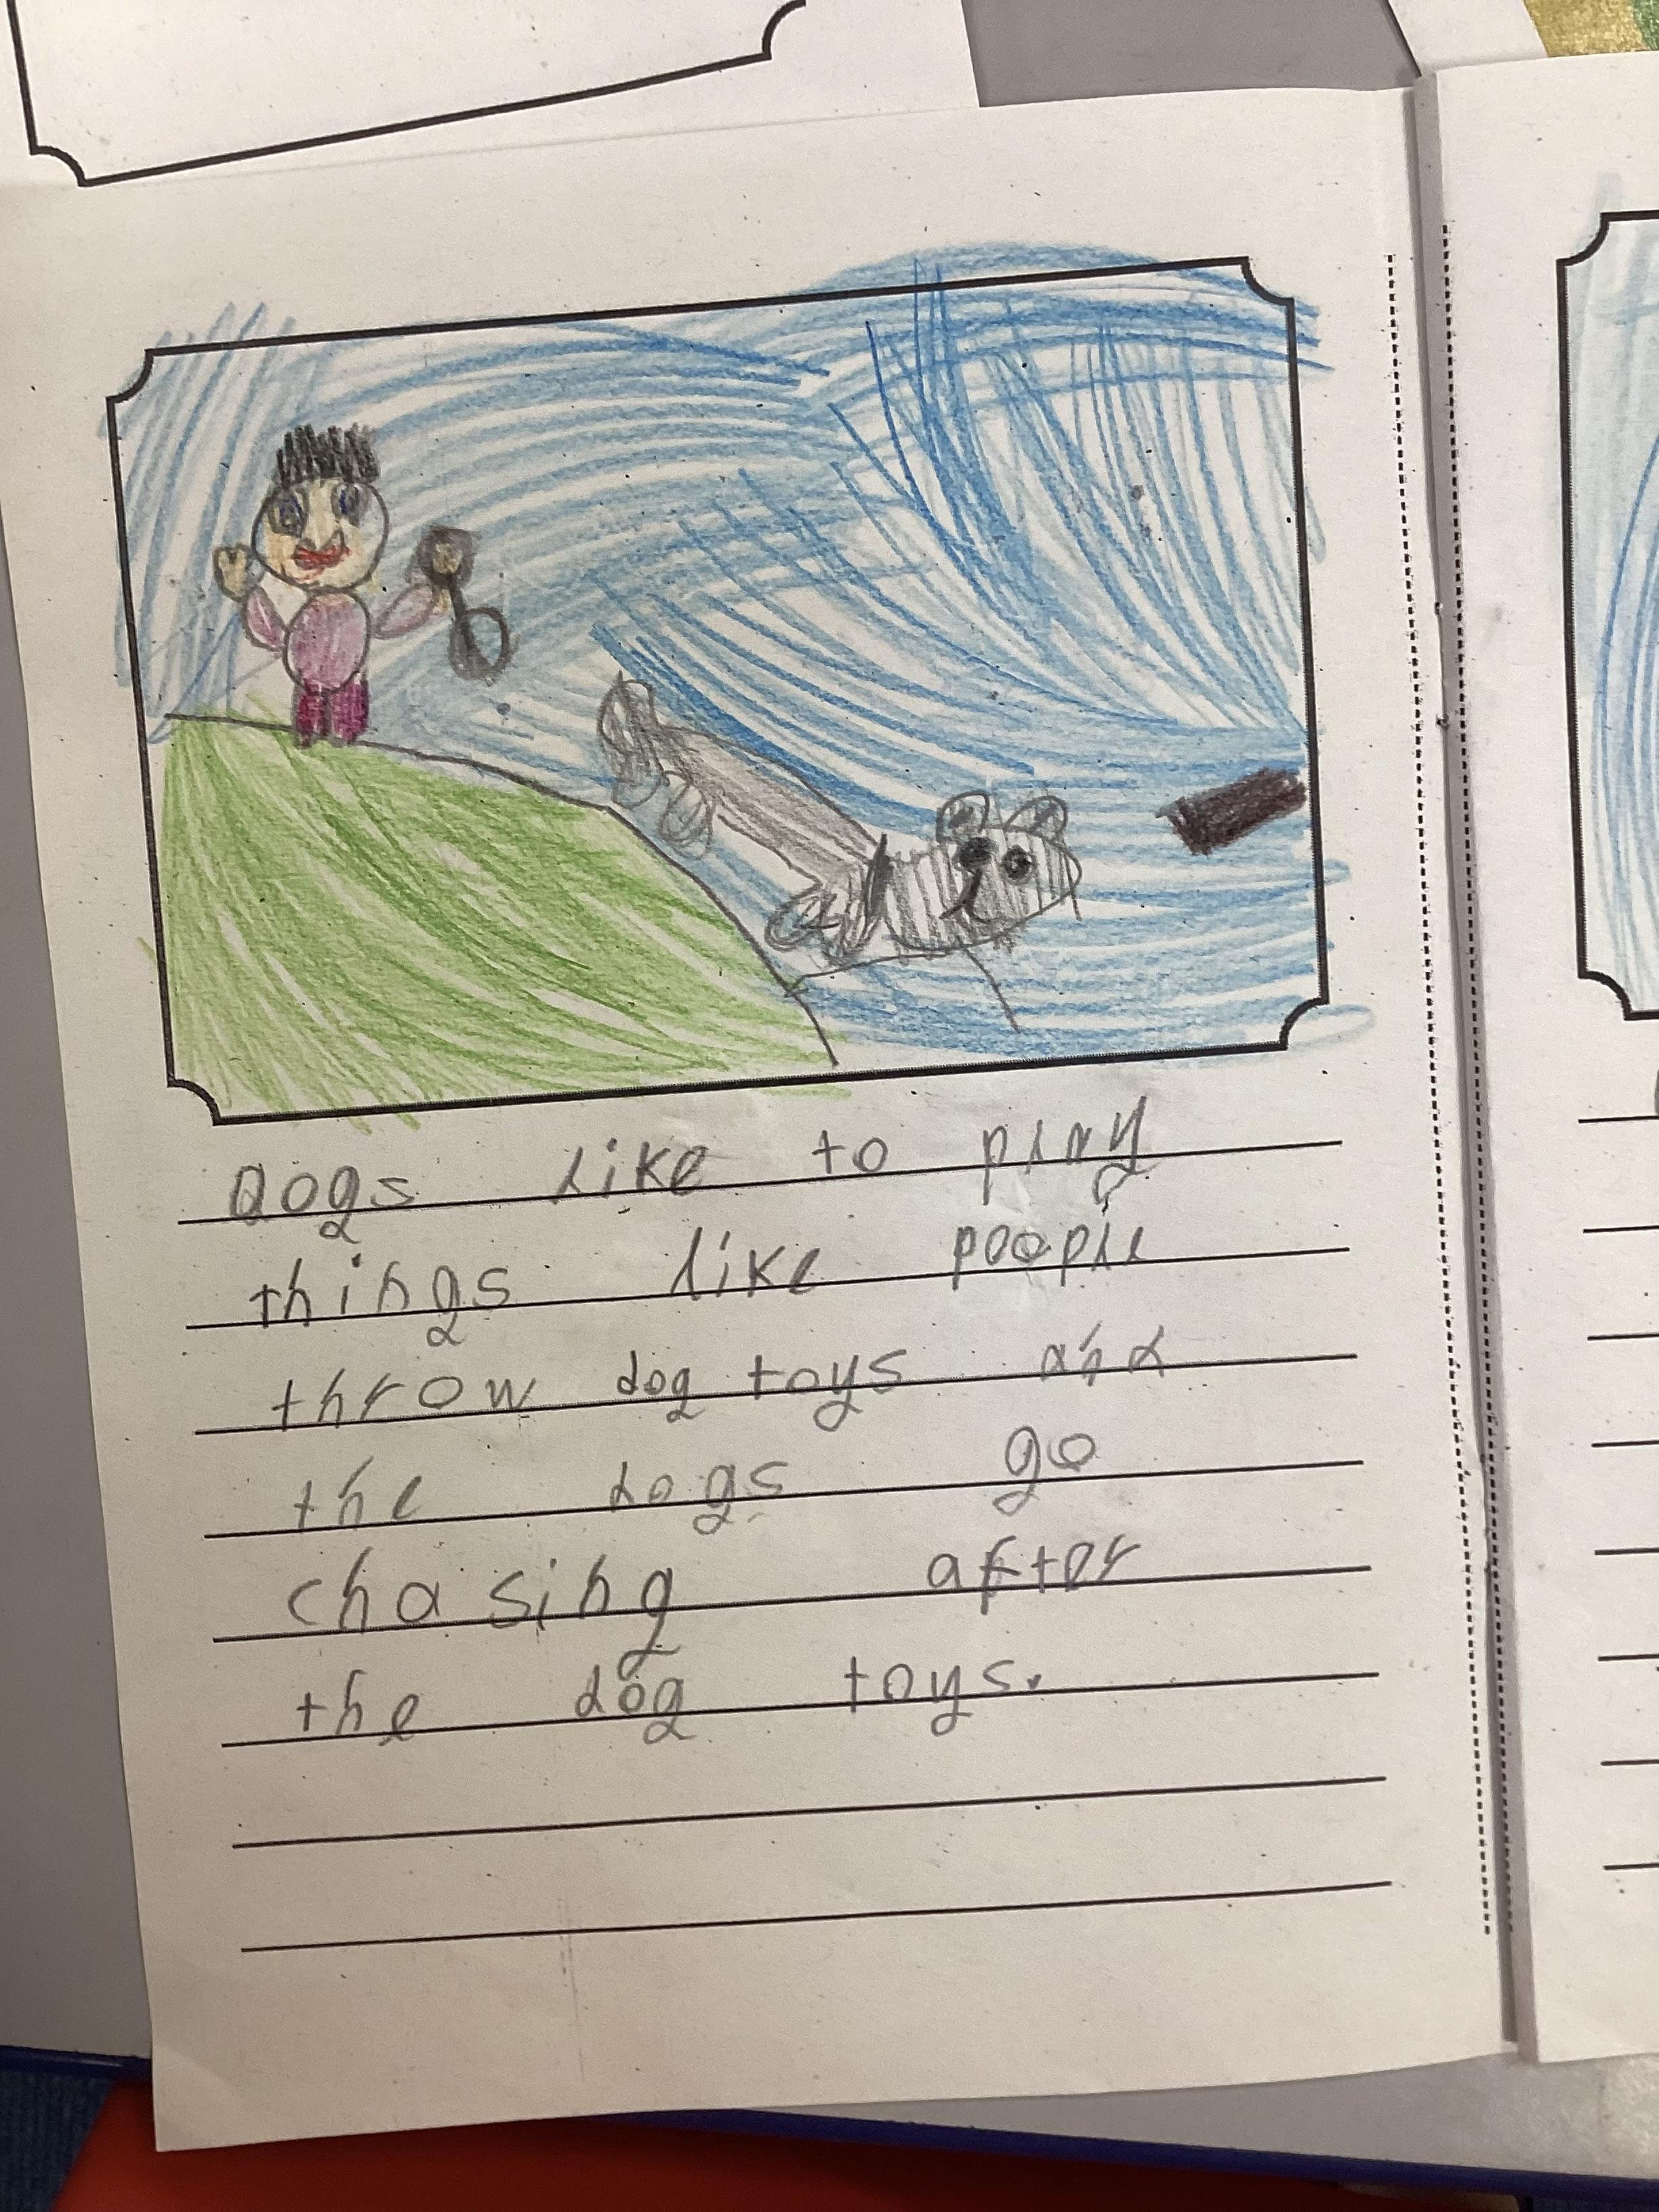 Dogs like to play
things like people
throw dog toys and
the dogs go
chasing after
the dog toys.